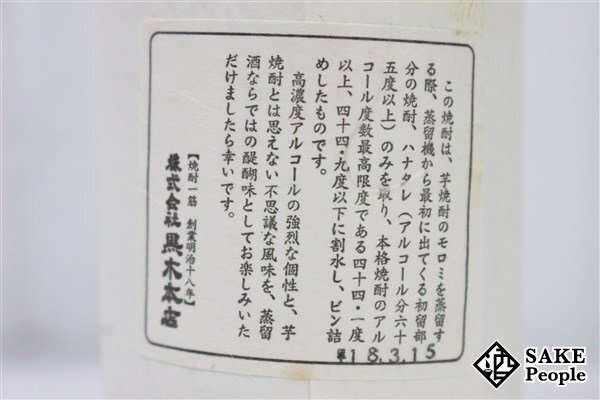 この焼酎は、芋焼酎のモロミを蒸留す
る際、蒸留機から最初に出てくる初留部
分の焼酎、ハナタレ（アルコール分六十
五度以上）のみを取り、本格焼酎のアル
コール度数最高限度である四十四・一度
以上、四十四・九度以下に割水し、ビン詰
めしたものです。
高濃度アルコールの強烈な個性と、芋
焼酎とは思えない不思議な風味を、蒸留
酒ならではの醍醐味としてお楽しみいた
だけましたら幸いです。
【焼酎一筋 創業明治十八年】
株式会社黒木本店
18.3.15
SAKE
People